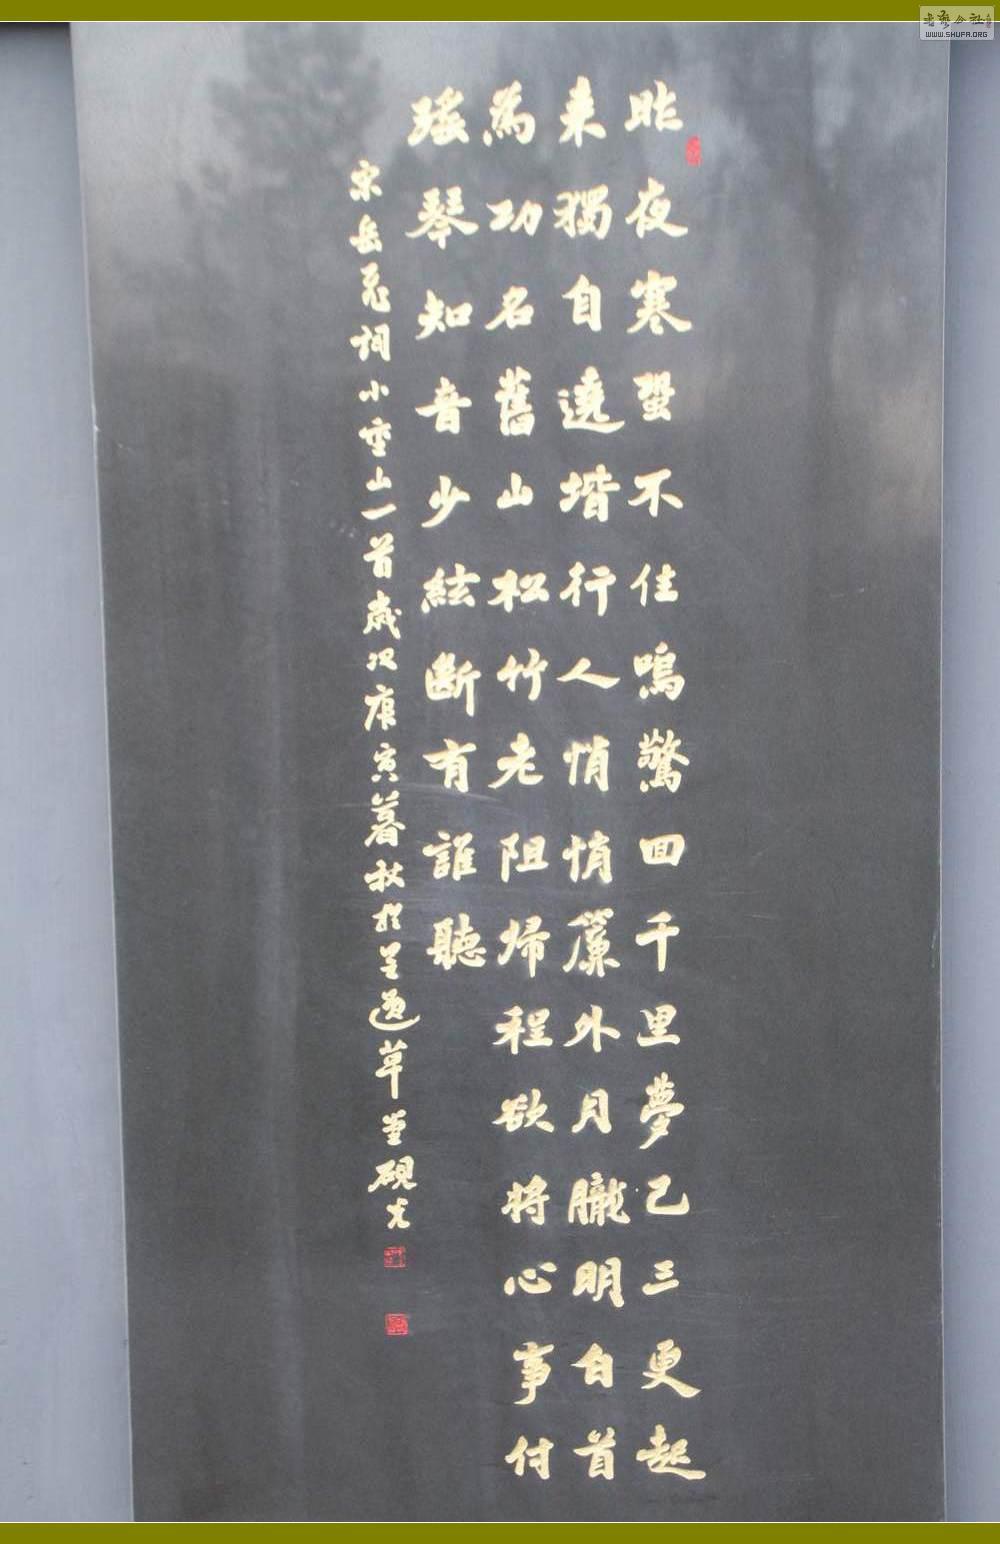 昨夜寒蛩不住鳴驚回千里夢已三更起
来獨自遶堦行人悄悄簾外月朧明白首
為功名舊山松竹老阻歸程欲将心事付
瑤琴知音少絃斷有誰聽
宋岳飛詞小重山一首歲次庚寅暮秋於草堂硯光
WWW.SHUFA.ORG